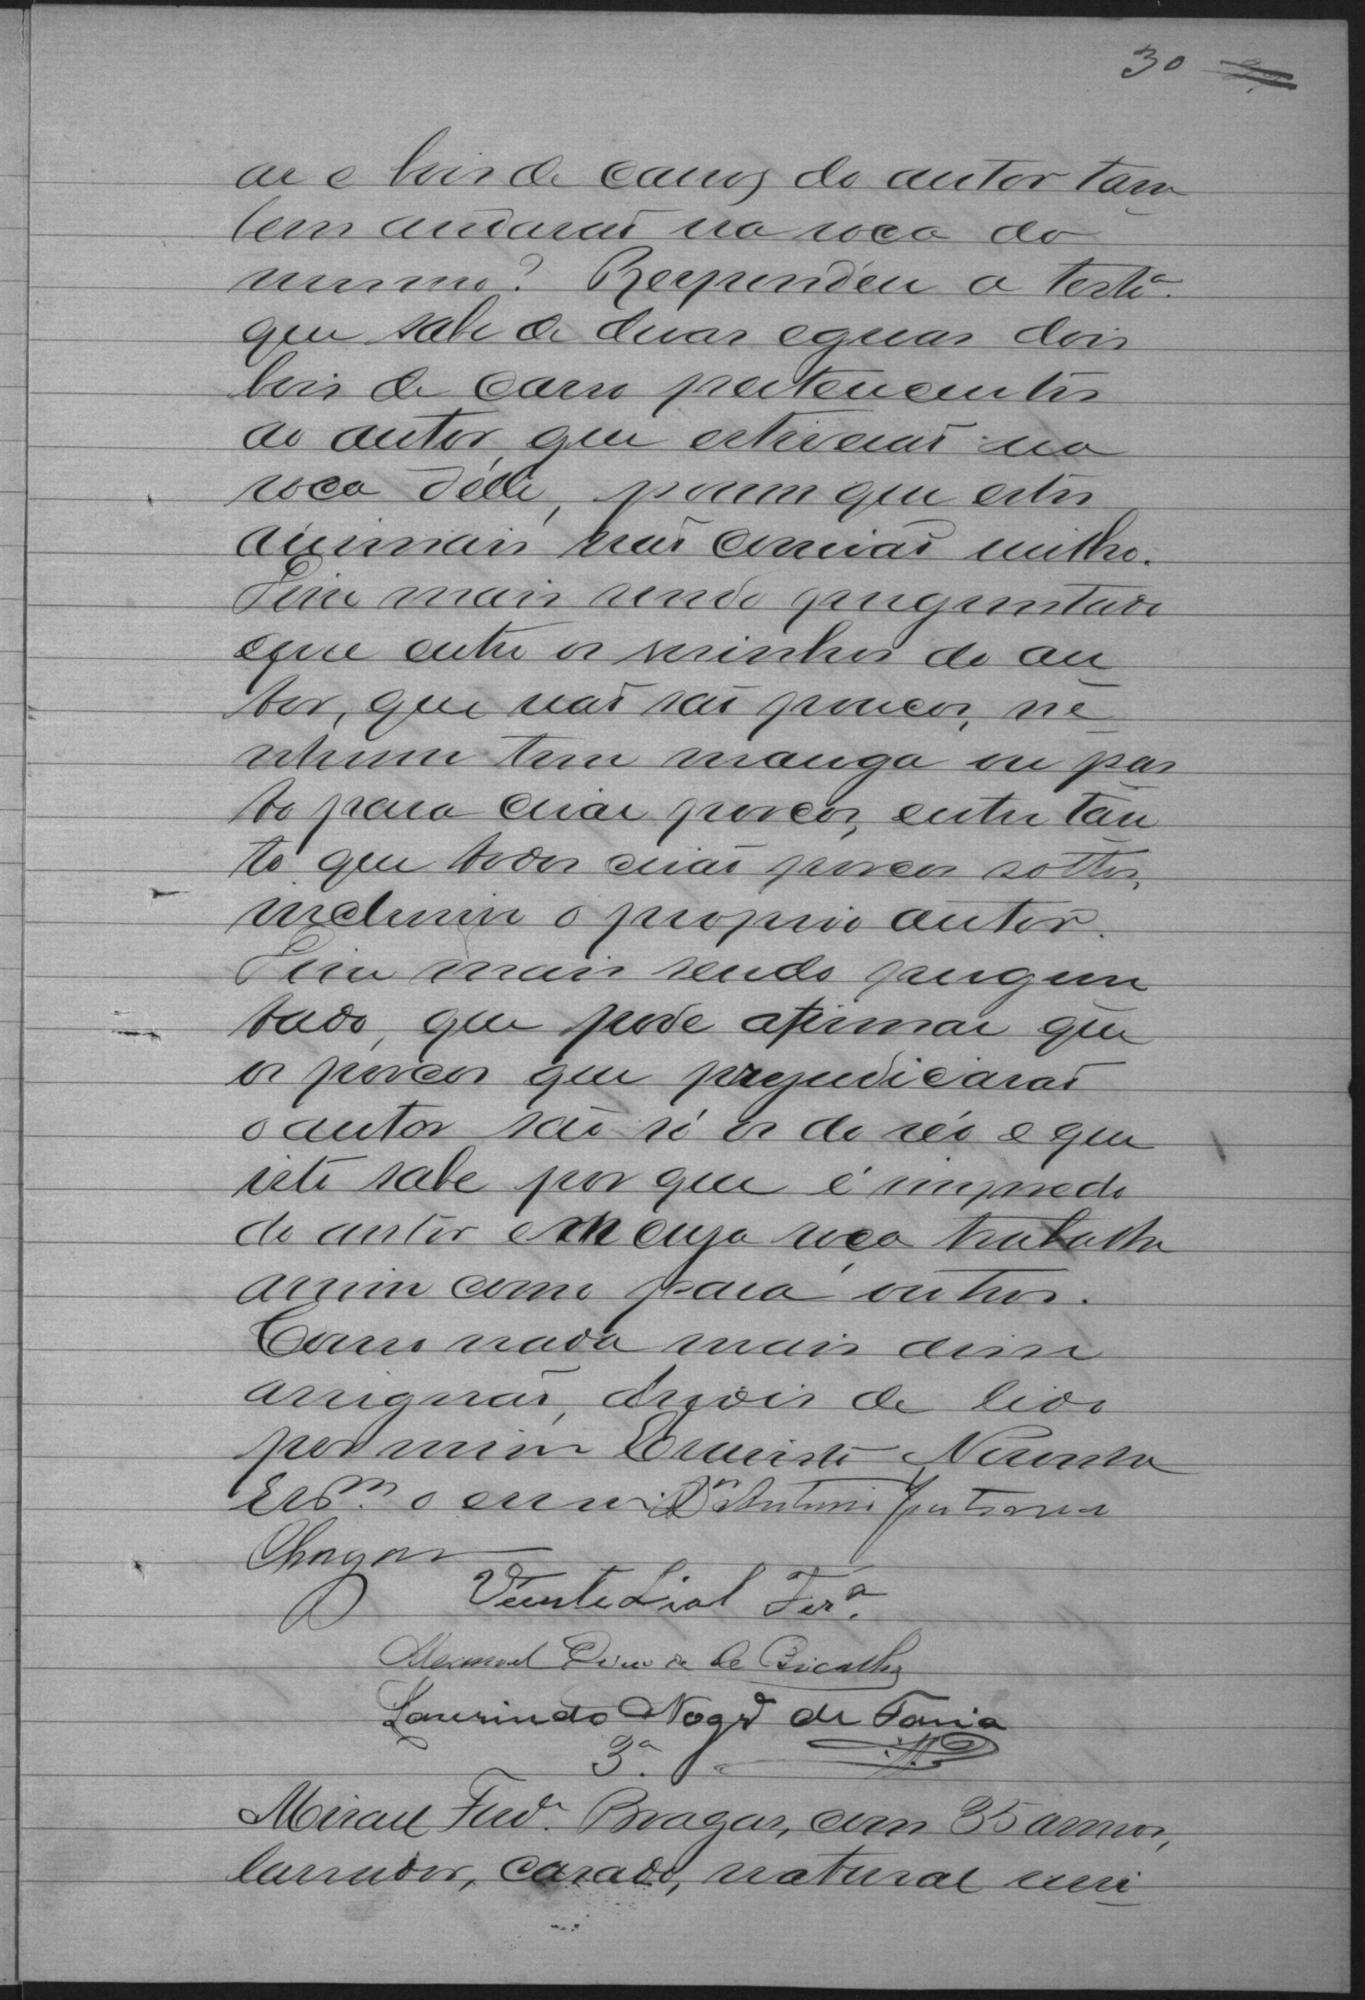 30
ar e bois de carros do autor tam
bem andaraõ na roça do
mesmo? Respondeu a testª.
que sabe de duas eguas dois
bois de carro pertencentes
ao autor, que estiveraõ na
roça délle, porem que estes
animais naõ comiaõ milho.
Disse mais sendo preguntado
que entre os visinhos do au
tor, que naõ saõ poucos, ne
nhum tem manga ou pas
to para criar porcos, entre tan
to que todos criaõ porcos soltos,
inclusive o proprio autor.
Disse mais sendo pregun
tado, que pode afirmar que
os porcos que prejudicaraõ
o autor saõ só os do réo e que
isto sabe por que é
do autor em cuja roça trabalha
assim como para outros.
Como nada mais disse
assignaõ, depois de lido
por mim
Esºm. o escrevi. Antonio
Chagas
Vicente Lial Ferª.
Manoel de Bicalho
Laurindo Nogrª de Faria
3ª.
Misael Fredº. Bragas, com 35 annos,
lavrador, casado, natural